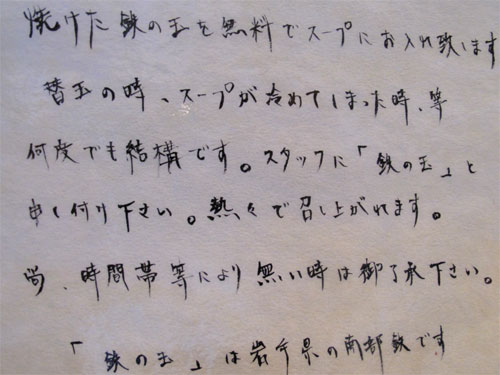 焼けた鉄の玉を無料でスープにお入れ致します
替玉の時、スープが冷めてしまった時、等
何度でも結構です。スタッフに「鉄の玉」と
申し付け下さい。熱々で召し上がれます。
尚、時間帯等により無い時は御了承下さい。
「鉄の玉」は岩手県の南部鉄です